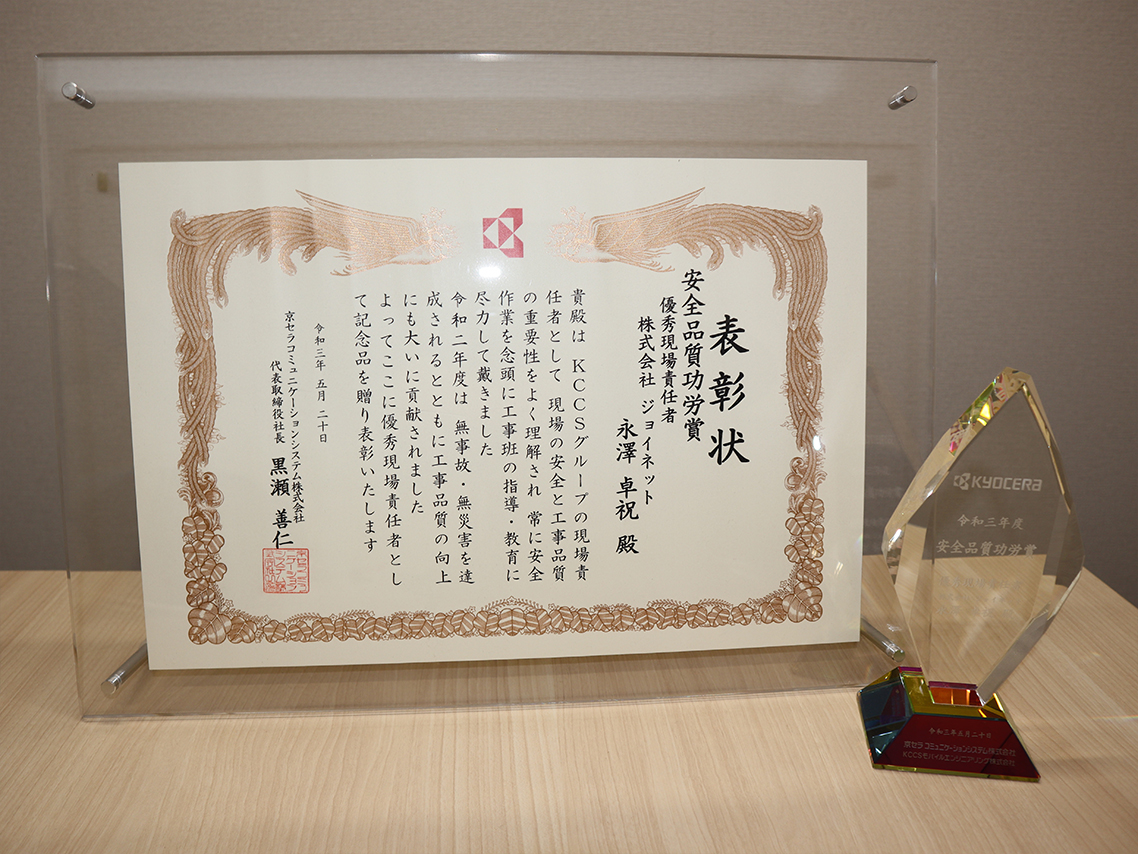 表彰状
安全品質功労賞
優秀現場責任者
株式会社 ジョイネット
永澤 卓祝 殿
貴殿は KCCSグループの現場責
任者として 現場の安全と工事品質
の重要性をよく理解され 常に安全
作業を念頭に工事班の指導・教育に
尽力して戴きました
令和二年度は 無事故・無災害を達
成されるとともに工事品質の向上
にも大いに貢献されました
よってここに優秀現場責任者とし
て記念品を贈り表彰いたします
令和三年 五月 二十日
京セラコミュニケーションシステム株式会社
代表取締役社長 黒瀬 善仁
KYOCERA
令和三年度
安全品質功労賞
令和三年五月二十日
京セラ コミュニケーションシステム株式会社
KCCSモバイルエンジニアリング株式会社